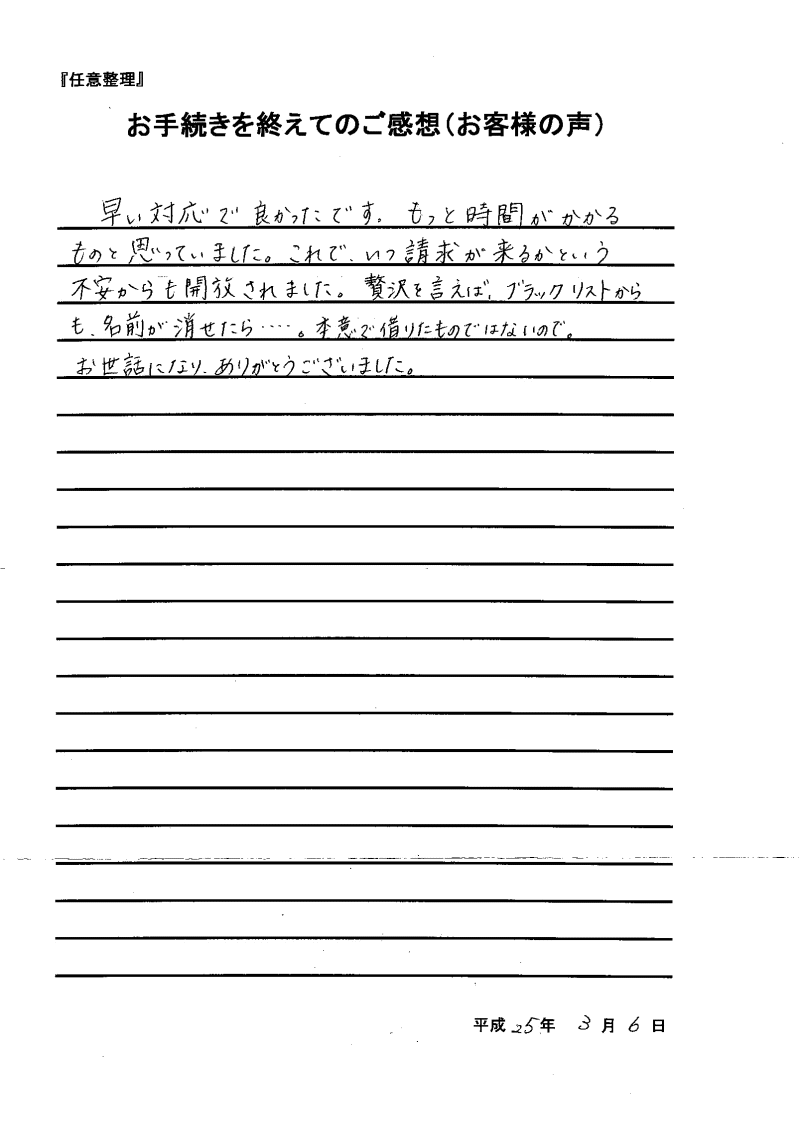 『任意整理』
お手続きを終えてのご感想(お客様の声)
早い対応で良かったです。もっと時間がかかる
ものと思っていました。これで、いつ請求が来るかという
不安からも開放されました。贅沢を言えば、ブラックリストから
も、名前が消せたら・・・・。本意で借りたものではないので。
お世話になり、ありがとうございました。
平成25年 3月6日